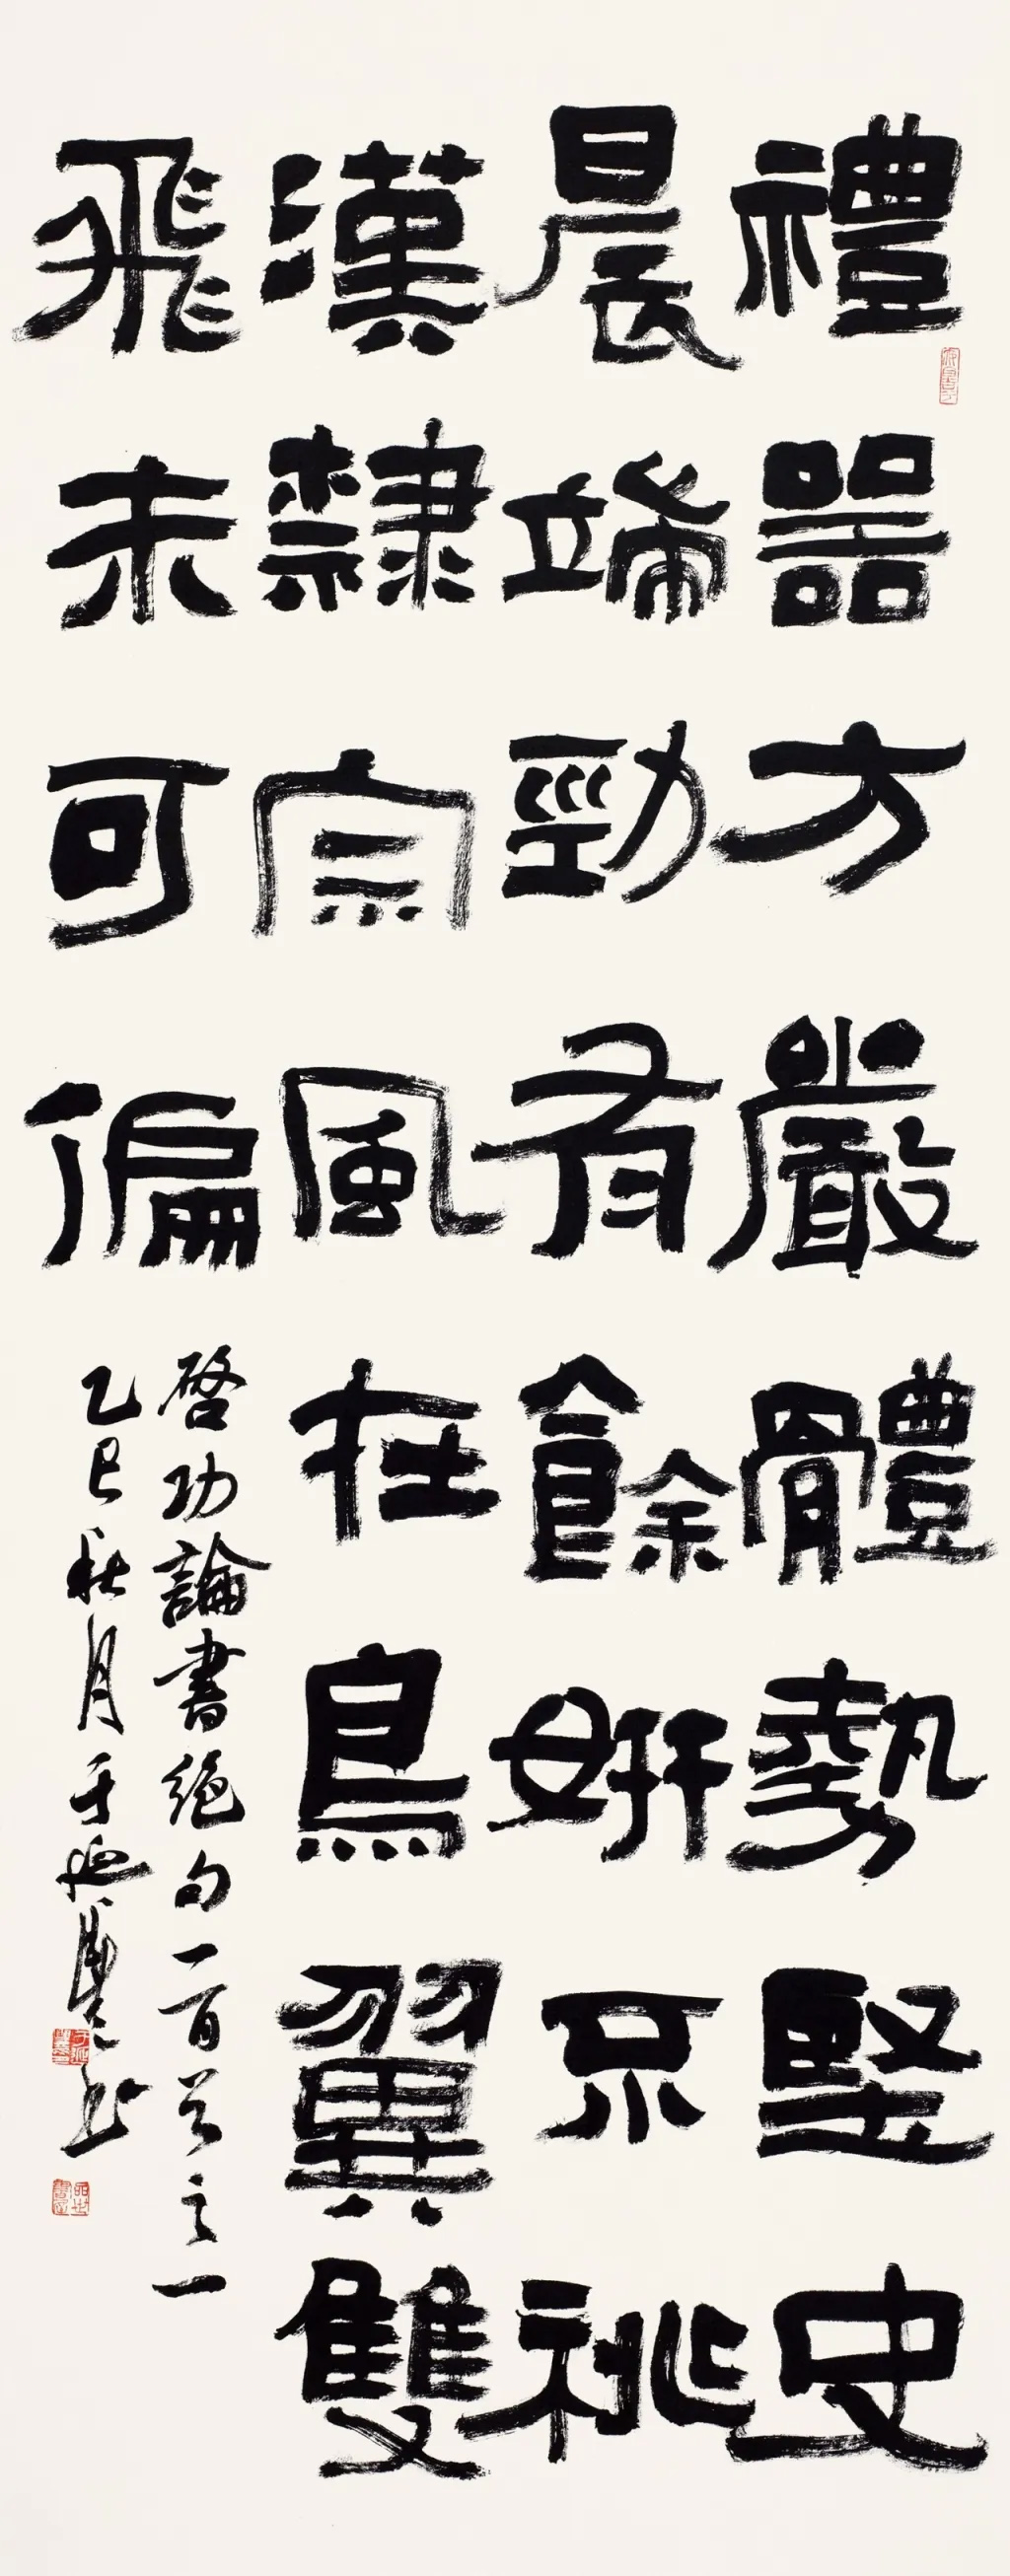 禮器方嚴體勢堅史
晨端勁有餘妍不祧
漢隸宗風在鳥翼雙
飛未可偏
啓功論書絶句一百首之一
乙巳秋月于書